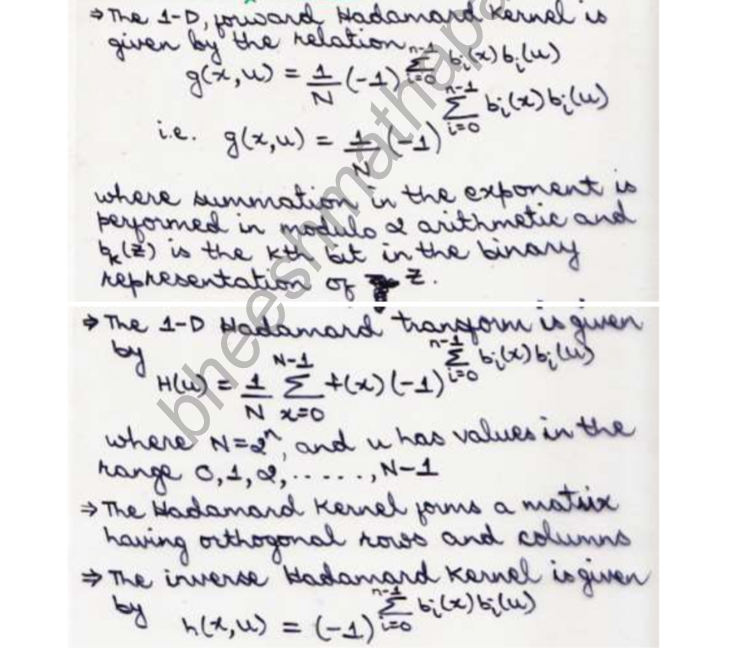 ⇒ The 1-D, forward Hadamard Kernel is
given by the relation
g(x,u) = 1/N (-1)^{∑_{i=0}^{n-1} b_i(x) b_i(u)}
i.e. g(x,u) = 1/N (-1)^{∑_{i=0}^{n-1} b_i(x) b_i(u)}
where summation in the exponent is
performed in modulo 2 arithmetic and
b_k(z) is the kth bit in the binary
representation of z.
⇒ The 1-D Hadamard transform is given
by
H(u) = 1/N ∑_{x=0}^{N-1} f(x) (-1)^{∑_{i=0}^{n-1} b_i(x) b_i(u)}
where N=2^n, and u has values in the
range 0,1,2,......, N-1
⇒ The Hadamard Kernel forms a matrix
having orthogonal rows and columns
⇒ The inverse Hadamard Kernel is given
by h(x,u) = (-1)^{∑_{i=0}^{n-1} b_i(x) b_i(u)}